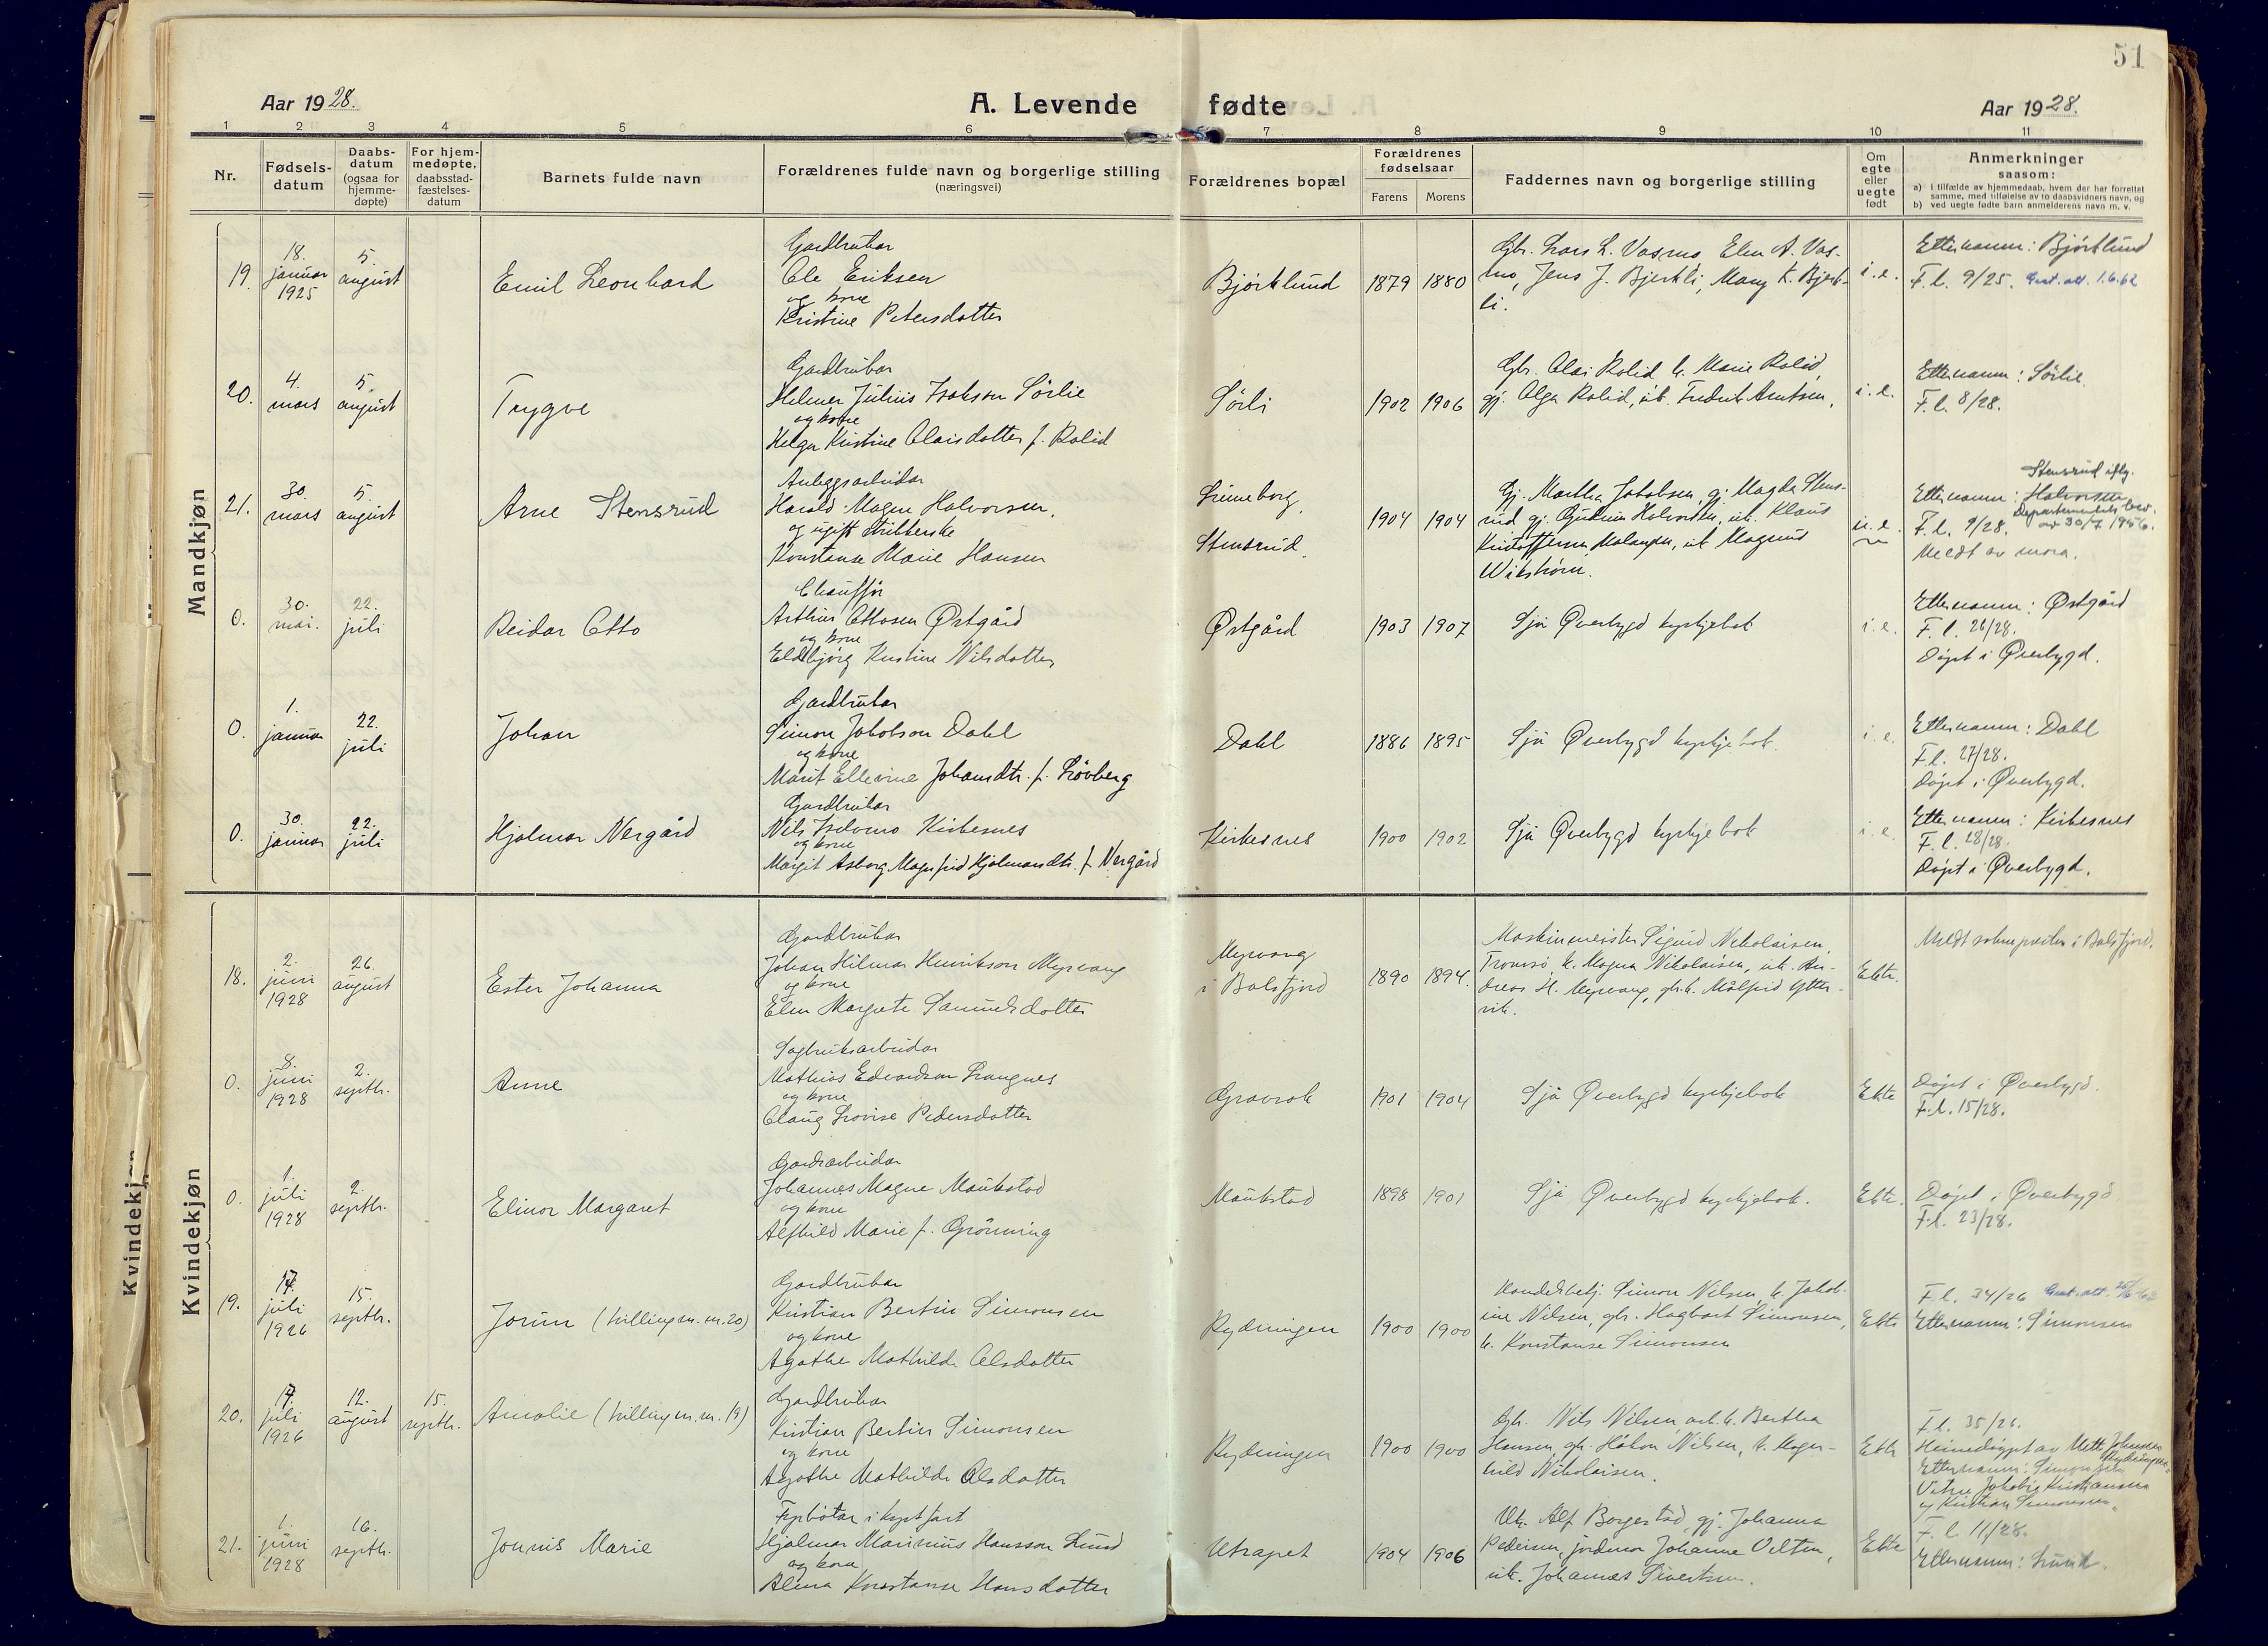 51
Aar 1928.
A. Levende fødte
Aar 1928.
1 2 3 4 5 6 7 8 9 10 11
Nr.
Fødsels-
datum
Daabs-
datum
(ogsaa for
hjemme-
døpte)
For hjem-
medøpte,
daabsstad-
fæstelses-
datum
Barnets fulde navn
Forældrenes fulde navn og borgerlige stilling
(næringsvei)
Forældrenes bopæl
Forældrenes
fødselsaar
Farens Morens
Faddernes navn og borgerlige stilling
Om
egte
eller
uegte
født
Anmerkninger
saasom:
a) i tilfælde av hjemmedaab, hvem der har forrettet
samme, med tilføielse av to daabsvidners navn, og
b) ved uegte fødte barn anmelderens navn m. v.
Mandkjøn
19.
18.
januar
1925
5.
august
Emil Leonhard
Gardbrukar
Ole Eriksen
og kone
Kristine Petersdatter
Bjørklund
1879 1880
Gbr. Lars L. Vasmo, Elen A. Vas-
mo, Jens J. Bjerkli, Mary K. Bjerk-
li.
i.e.
Etternamn: Bjørklund
F.l. 9/25. 1.6.62
20.
4.
mars
5.
august
Trygve
Gardbrukar
Helmer Julius Isaksen Sørlie
og kone
Helga Kristine Olaisdatter f. Rolid
Sørli
1902 1906
Gbr. Olai Rolid, k. Marie Rolid,
gj. Olga Rolid, uk. Fredrik Arntsen,
i.e.
Etternamn: Sørlie.
F.l. 8/28.
21.
30.
mars
5.
august
Arne Stensrud
Anleggsarbeidar
Harald Magne Halvorsen,
og ugift strikkerske
Konstanse Marie Hansen
Stensrud.
1904 1904
Gj. Martha Jakobsen, gj. Magda Stens-
rud, gj. Halvorsen, uk. Klaus
Kristoffersen uk. Magnus
Wikstrøm.
u.e.
Stensrud iflg.
Etternamn: Halvorsen
Departementets bev.
F.l. 9/28. av 30/7 1956.
Meldt av mora.
0.
30.
mai.
22.
juli
Reidar Otto
Chauffør
Arthur Ottosen Østgård
og kone
Eldbjørg Kristine Nilsdatter
Østgård
1903 1907
Sjå Øverbygd kyrkjebok
i.e.
Etternamn: Østgård
F.l. 26/28.
Døpt i Øverbygd.
0.
1.
januar
22.
juli
Johan
Gardbrukar
Simon Jakobson Dahl
og kone
Marit Ellevine Johansdtr. f. Løvberg
Dahl
1886 1895
Sjå Øverbygd kyrkjebok.
i.e.
Etternamn: Dahl
F.l. 27/28.
Døpt i Øverbygd.
0.
30.
januar
22.
juli
Hjalmar Nergård
Gardbrukar
Nils Kirkesnes
og kone
Margit Asborg Magnfrid Hjalmarsdtr. f. Nergård
Kirkesnes
1900 1902
Sjå Øverbygd kyrkjebok
i.e.
Etternamn: Kirkesnes
F.l. 28/28.
Døpt i Øverbygd.
Kvindekjøn
Kvindekjøn
18.
2.
juni
1928
26.
august
Ester Johanna
Gardbrukar
Johan Hilmar Henrikson Myrvang
og kone
Elen Margrete Samuelsdatter
Myrvang
i Balsfjord
1890 1894.
Maskinmeister Sigurd Nikolaisen,
Tromsø, k. Magna Nikolaisen, uk. An-
dreas H. Myrvang, gk. k. Målfrid Ytter-
vik.
Ekte.
Meldt soknepresten i Balsfjord.
0.
8.
juni
1928
2.
septbr.
Anne
Sagbruksarbeidar
Mathias Edvardsen Langnes
og kone
Olaug Lovise Pedersdatter
Gravrok
1901 1904
Sjå Øverbygd kyrkjebok
Ekte
Døpt i Øverbygd.
F.l. 15/28.
0.
1.
juli
1928
2.
septbr.
Elinor Margaret
Gardsarbeidar
Johannes Magne Maukstad
og kone
Alfhild Marie f. Grønning
Maukstad
1898 1901
Sjå Øverbygd kyrkjebok.
Ekte.
Døpt i Øverbygd
F.l. 23/28.
19.
17.
juli
1926
15.
septbr.
Jorun (tvilling m. nr. 20)
Gardbrukar
Kristian Bertin Simonsen
og kone
Agathe Mathilde Olsdatter
Rydningen
1900 1900
Handelsbetj. Simon Nilsen, k. Jakob-
ine Nilsen, gbr. Hagbart Simonsen,
k. Konstanse Simonsen
Ekte
F.l. 34/26
Etternamn: Simonsen
20.
17.
juli
1926
12.
august
15.
septbr.
Amalie (tvilling m. nr. 19)
Gardbrukar
Kristian Bertin Simonsen
og kone
Agathe Mathilde Olsdatter
Rydningen
1900 1900
Gbr. Nils Nilsen, k. Bertha
Hansen, gbr. Håkon Nilsen, k. Magn-
hild Nikolaisen.
Ekte
F.l. 35/26.
Heimedøypt av Mette Johansen
Rydningen.
Etternamn: Simonsen
Kristiansen
og Kristian Simonsen.
21.
1.
juni
1928
16.
septbr.
Jonnis Marie
Fyrbøtar i kystfart
Hjalmar Marinius Hansson Lund
og kone
Alma Konstanse Hansdatter
Utrapet
1904 1906
Uk. Alf Borgestad, gj. Johanna
Pedersen, jordmor Johanne Velten,
uk. Johannes Sivertsen.
Ekte
F.l. 11/28.
Etternamn: Lund.